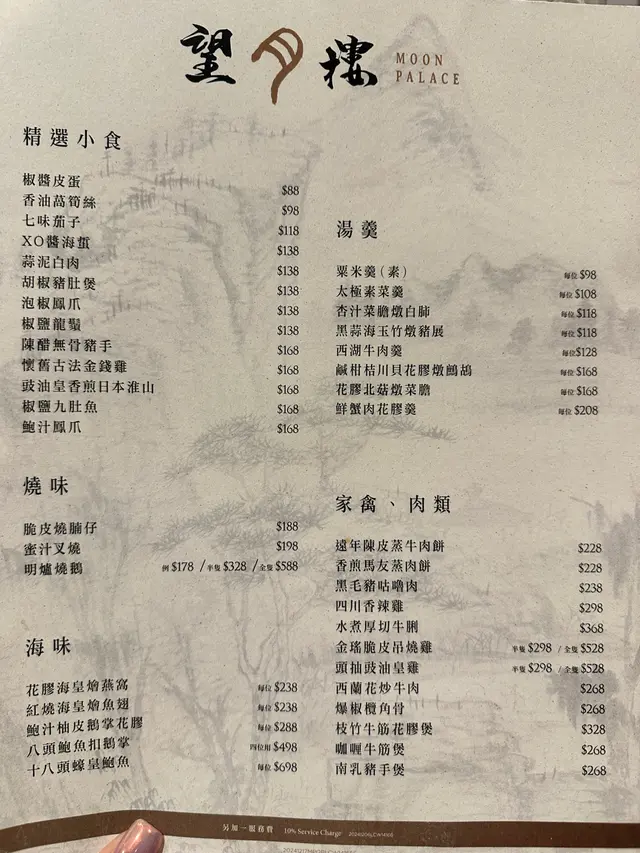 望月樓 MOON
PALACE
精選小食
椒醬皮蛋 $88
香油萵筍絲 $98
七味茄子 $118
XO醬海蜇 $138
蒜泥白肉 $138
胡椒豬肚煲 $138
泡椒鳳爪 $138
椒鹽龍鬚 $138
陳醋無骨豬手 $168
懷舊古法金錢雞 $168
豉油皇香煎日本淮山 $168
椒鹽九肚魚 $168
鮑汁鳳爪 $168
燒味
脆皮燒腩仔 $188
蜜汁叉燒 $198
明爐燒鵝 例 $178 / 半隻 $328 / 全隻 $588
海味
花膠海皇燴燕窩 每位 $238
紅燒海皇燴魚翅 每位 $238
鮑汁柚皮鵝掌花膠 每位 $288
八頭鮑魚扣鵝掌 四位用 $498
十八頭蠔皇鮑魚 每位 $698
湯羹
粟米羹（素） 每位 $98
太極素菜羹 每位 $108
杏汁菜膽燉白肺 每位 $118
黑蒜海玉竹燉豬展 每位 $118
西湖牛肉羹 每位 $128
鹹柑桔川貝花膠燉鷓鴣 每位 $168
花膠北菇燉菜膽 每位 $168
鮮蟹肉花膠羹 每位 $208
家禽、肉類
遠年陳皮蒸牛肉餅 $228
香煎馬友蒸肉餅 $228
黑毛豬咕嚕肉 $238
四川香辣雞 $298
水煮厚切牛脷 $368
金瑤脆皮吊燒雞 半隻 $298 / 全隻 $528
頭抽豉油皇雞 半隻 $298 / 全隻 $528
西蘭花炒牛肉 $268
爆椒欖角骨 $268
枝竹牛筋花膠煲 $328
咖喱牛筋煲 $268
南乳豬手煲 $268
另加一服務費 10% Service Charge